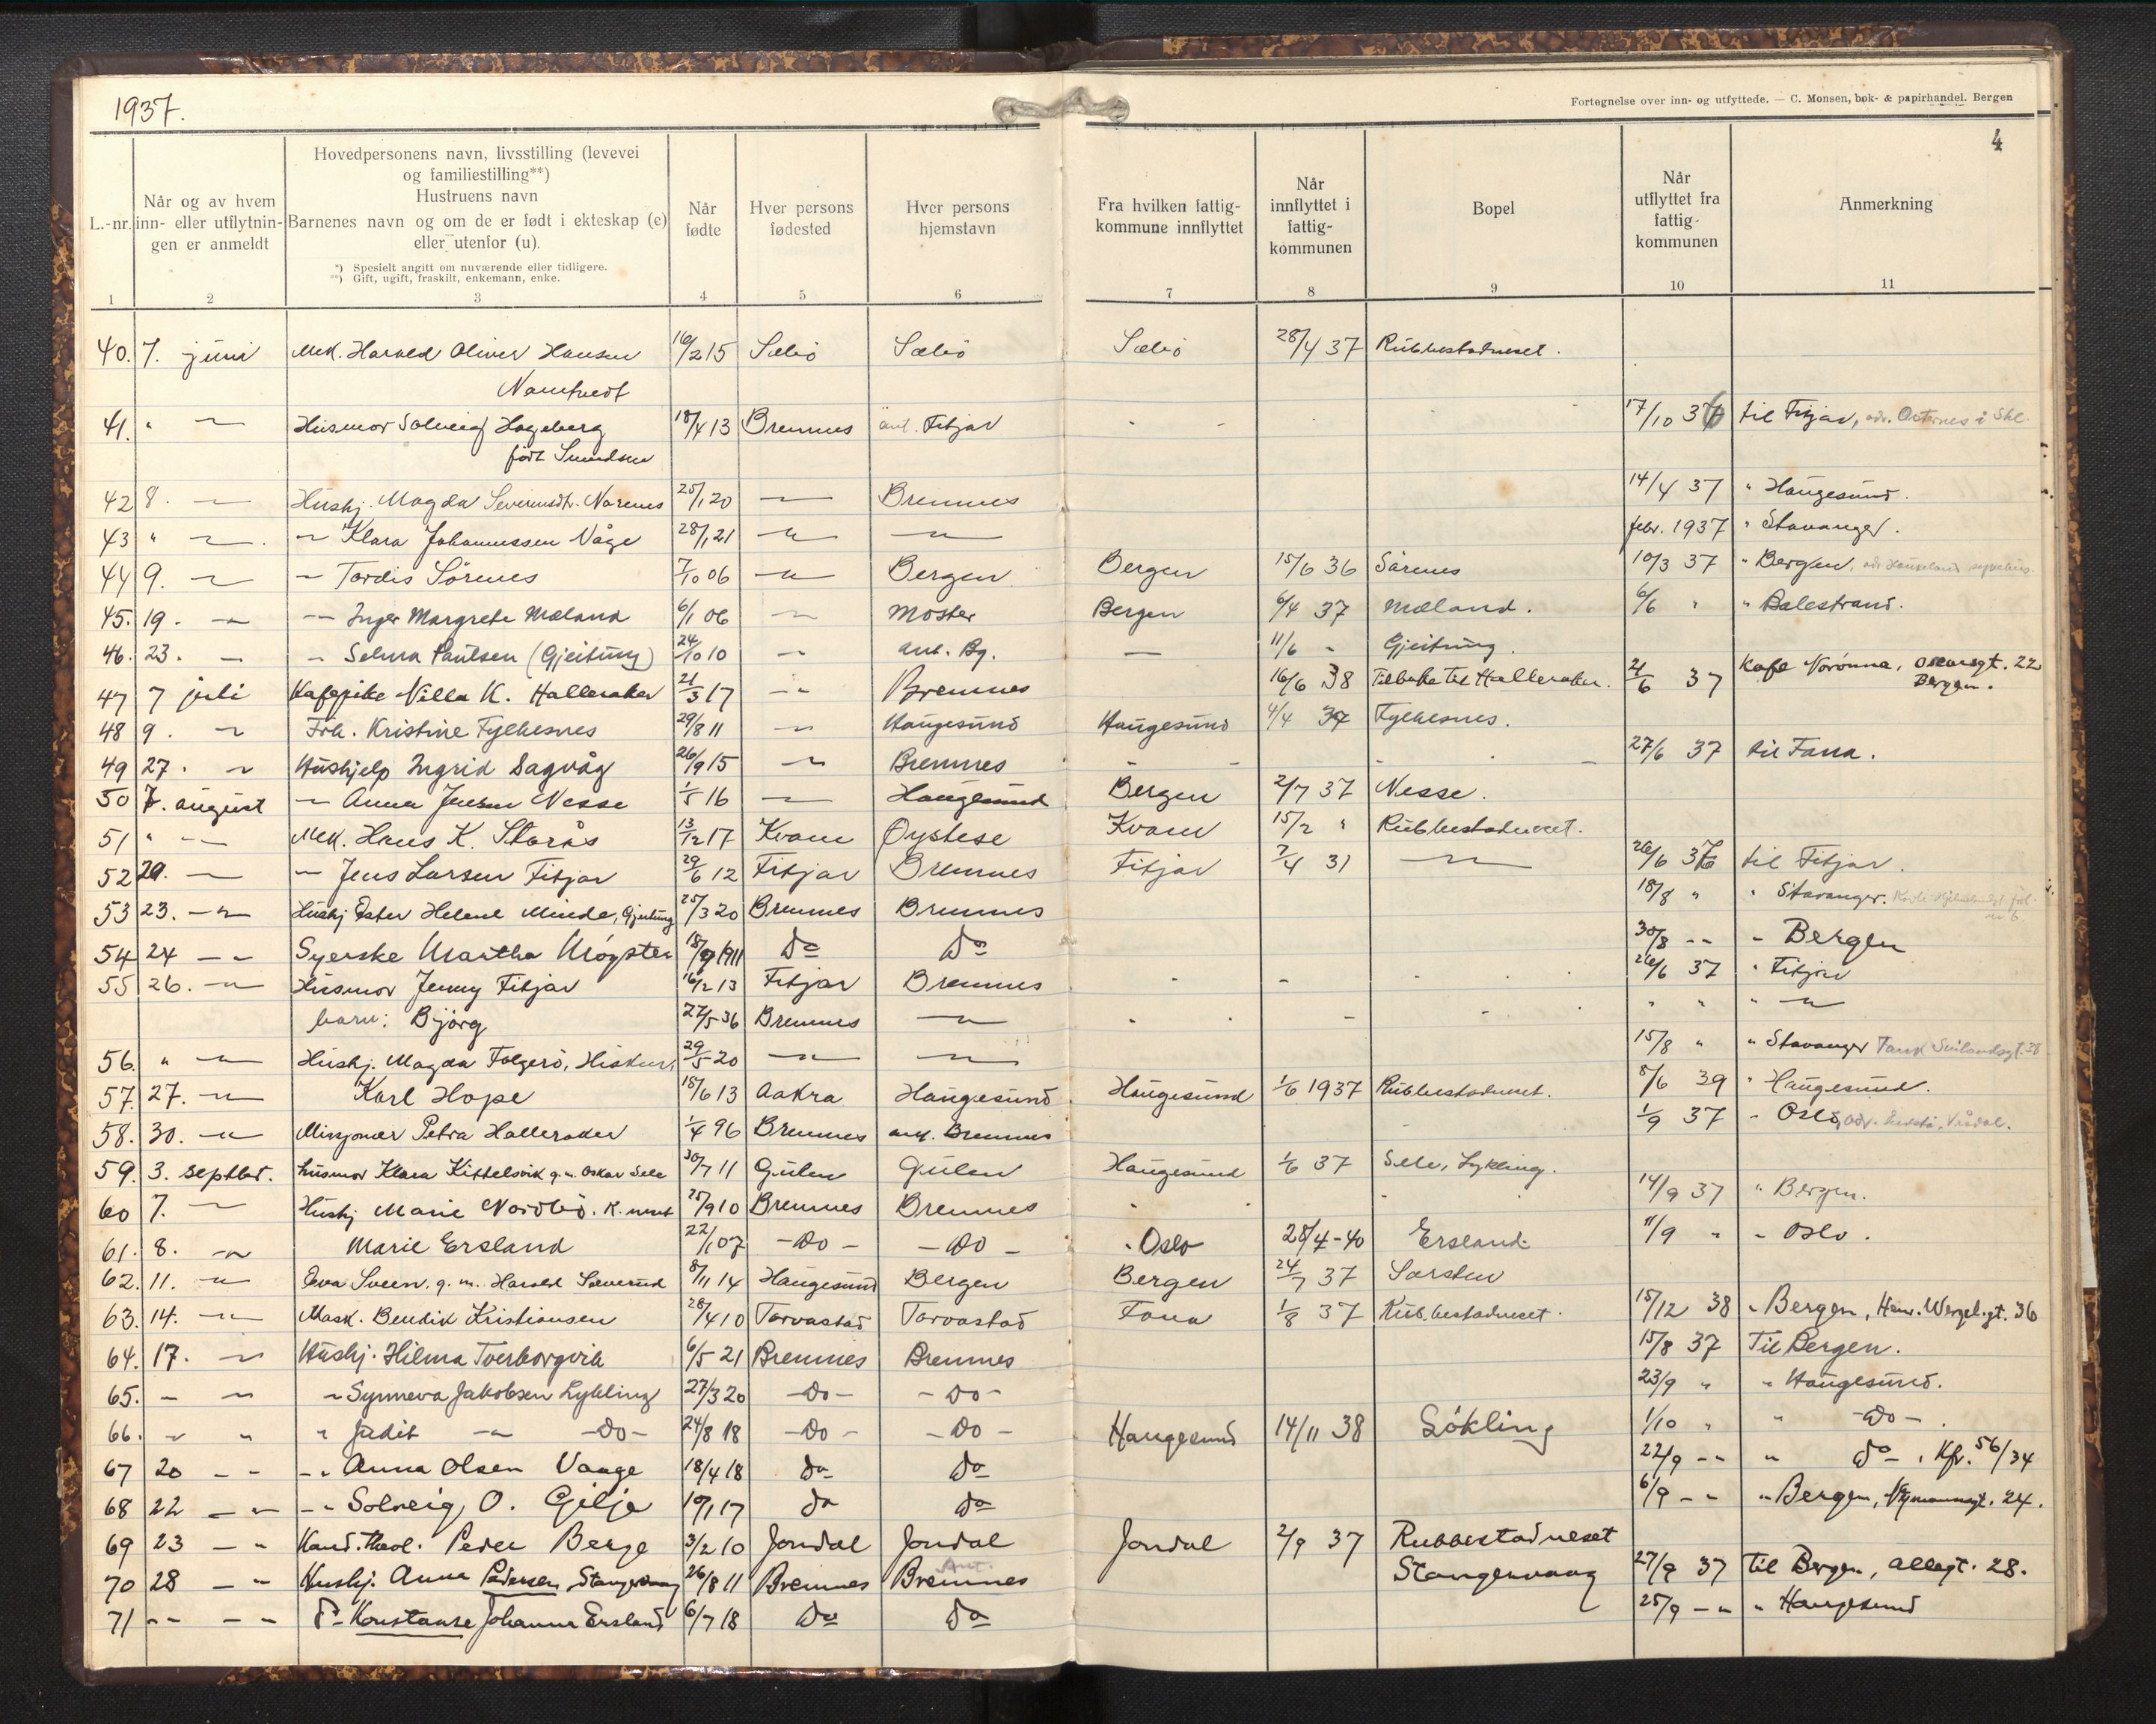 1937.
Fortegnelse over inn- og utflyttede. — C. Monsen, bok- & papirhandel. Bergen
4
L.-nr.
Når og av hvem inn- eller utflytningen er anmeldt
Hovedpersonens navn, livsstilling (levevei og familiestilling**)
Hustruens navn
Barnenes navn og om de er født i ekteskap (e) eller utenfor (u).
*) Spesielt angitt om nuværende eller tidligere.
**) Gift, ugift, fraskilt, enkemann, enke.
Når fødte
Hver persons fødested
Hver persons hjemstavn
Fra hvilken fattigkommune innflyttet
Når innflyttet i fattigkommunen
Bopel
Når utflyttet fra fattigkommunen
Anmerkning
1 2 3 4 5 6 7 8 9 10 11
40. 7. juni Mek. Harald Oliver Hansen 16/2 15 Sæbö Sæbö Sæbö 28/4 37 Rubbestadneset.
41. " — Husmor Solveig Hageberg 18/4 13 Bremnes ant. Fitjar 17/10 36 til Fitjar, i
født Simonsen
42 8. — Hushj. Magda 25/1 20 — Bremnes 14/4 37 " Haugesund.
43 " — — Klara Johannessen Våge 28/1 21 — — febr. 1937 " Stavanger.
44 9. — — Tordis Sörenes 7/10 06 — Bergen Bergen 15/6 36 Sörenes 10/3 37 " Bergen, Haukeland
45. 19. — — Inger Margrete Mæland 6/1 06 — Moster Bergen 6/4 37 Mæland. 6/6 " " Balestrand.
46. 23. — — Selma Paulsen (Gjeitung) 24/10 10 — ant. Bg. — 11/6 " Gjeitung.
47 7 juli Kafepike Villa K. Halleraker 21/3 17 — Bremnes 16/6 38 Tilbake til Halleraker. 21/6 37 Kafe Norönna, Oscarsgt. 22
Bergen.
48 9. — Frk. Kristine Fylkesnes 29/8 11 — Haugesund Haugesund 4/4 37 Fylkesnes.
49 27. — Hushjelp Ingrid Sagvåg 26/9 15 — Bremnes 27/6 37 til Fana.
50 7. august — Anna Jensen Nesse 1/5 16 — Haugesund Bergen 2/7 37 Nesse.
51 " — Mek. Hans K. Starås 13/12 17 Kvam Oystese Kvam 15/2 " Rubbestadneset.
52 20. — — Jens Larsen Fitjar 29/6 12 Fitjar Bremnes Fitjar 7/4 31 — 26/6 36 til Fitjar.
53 23. — Hushj Ester Helene Minde, Gjeitung 25/3 20 Bremnes Bremnes 18/8 " " Stavanger.
54 24 — Syerske Martha Mögster 18/9 1911 Do Do 30/8 — " Bergen
55 26. — Husmor Jenny Fitjar 16/2 13 Fitjar Bremnes 26/6 37 " Fitjar
barn: Bjórg 27/5 36 Bremnes — " " " —
56. " — Hushj. Magda Folgerö, 29/5 20 — — 15/8 " " Stavanger
57. 27. — Karl Hope 15/6 13 Aakra Haugesund Haugesund 1/6 1937 Rubbestadneset. 8/6 39 " Haugesund.
58. 30. — Missjonær Petra Halleraker 1/4 96 Bremnes ant. Bremnes 1/9 37 " Oslo,
59. 3. septbr. husmor Klara Kittelsvik g.m. Oskar Sele 30/7 11 Gulen Gulen Haugesund 1/6 37 Sele, Lykling.
60 7. — Hushj Marie Nordbö. R.neset 25/9 10 Bremnes Bremnes 14/9 37 " Bergen.
61. 8. — Marie Ersland 22/1 07 — Do — — Do — Oslo 28/4 - 40 Ersland 11/9 " " Oslo.
62. 11. — Eva Sveen. g.m. Harald Sæverud 8/11 14 Haugesund Bergen Bergen 24/7 37 Sarsten
63. 14. — Mask. Bendik Kristiansen 28/4 10 Torvastad Torvastad Fana 1/8 37 Rubbestadneset. 15/12 38 " Bergen, Henr. Wergel.gt. 36
64. 17. — Hushj. Hilma Tverborgvik 6/5 21 Bremnes Bremnes 15/8 37 Til Bergen.
65. — — " Synneva Jakobsen Lykling 27/3 20 — Do — — Do — 23/9 " " Haugesund.
66. " " " Judit — — Do — 24/8 18 — Do — — Do — Haugesund 14/11 38 Lökling 1/10 " " — Do — .
67 20 — — — Anna Olsen Vaage 18/4 18 Do Do 22/9 — " Do, Kfr. 56/34
68 22 — — — Solveig O. Gilje 10/1 17 Do Do 6/9 — " Bergen, Nymannsgt. 24.
69 23 — " Kand. theol. Peder Berge 3/2 10 Jondal Jondal Jondal 2/9 37 Rubbestadneset
70 28 — " Hushj. Anna Pedersen Stangervaag 26/8 11 Bremnes Ant. Bremnes Stangervaag 27/9 37 Til Bergen, allegt. 28.
71 — — — — Do Konstanse Johanna Ersland 6/7 18 Do Do 25/9 — " Haugesund